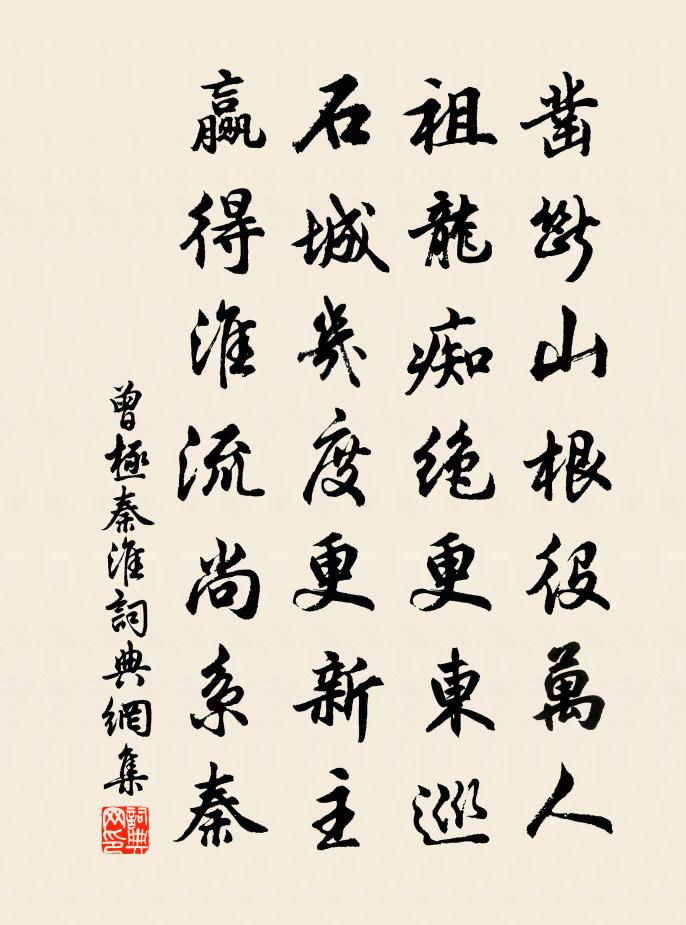 凿斷山根役萬人
祖龍痴絶更東巡
石城幾度更新主
贏得淮流尚系秦
曾極秦淮詞典網集
詞典網印